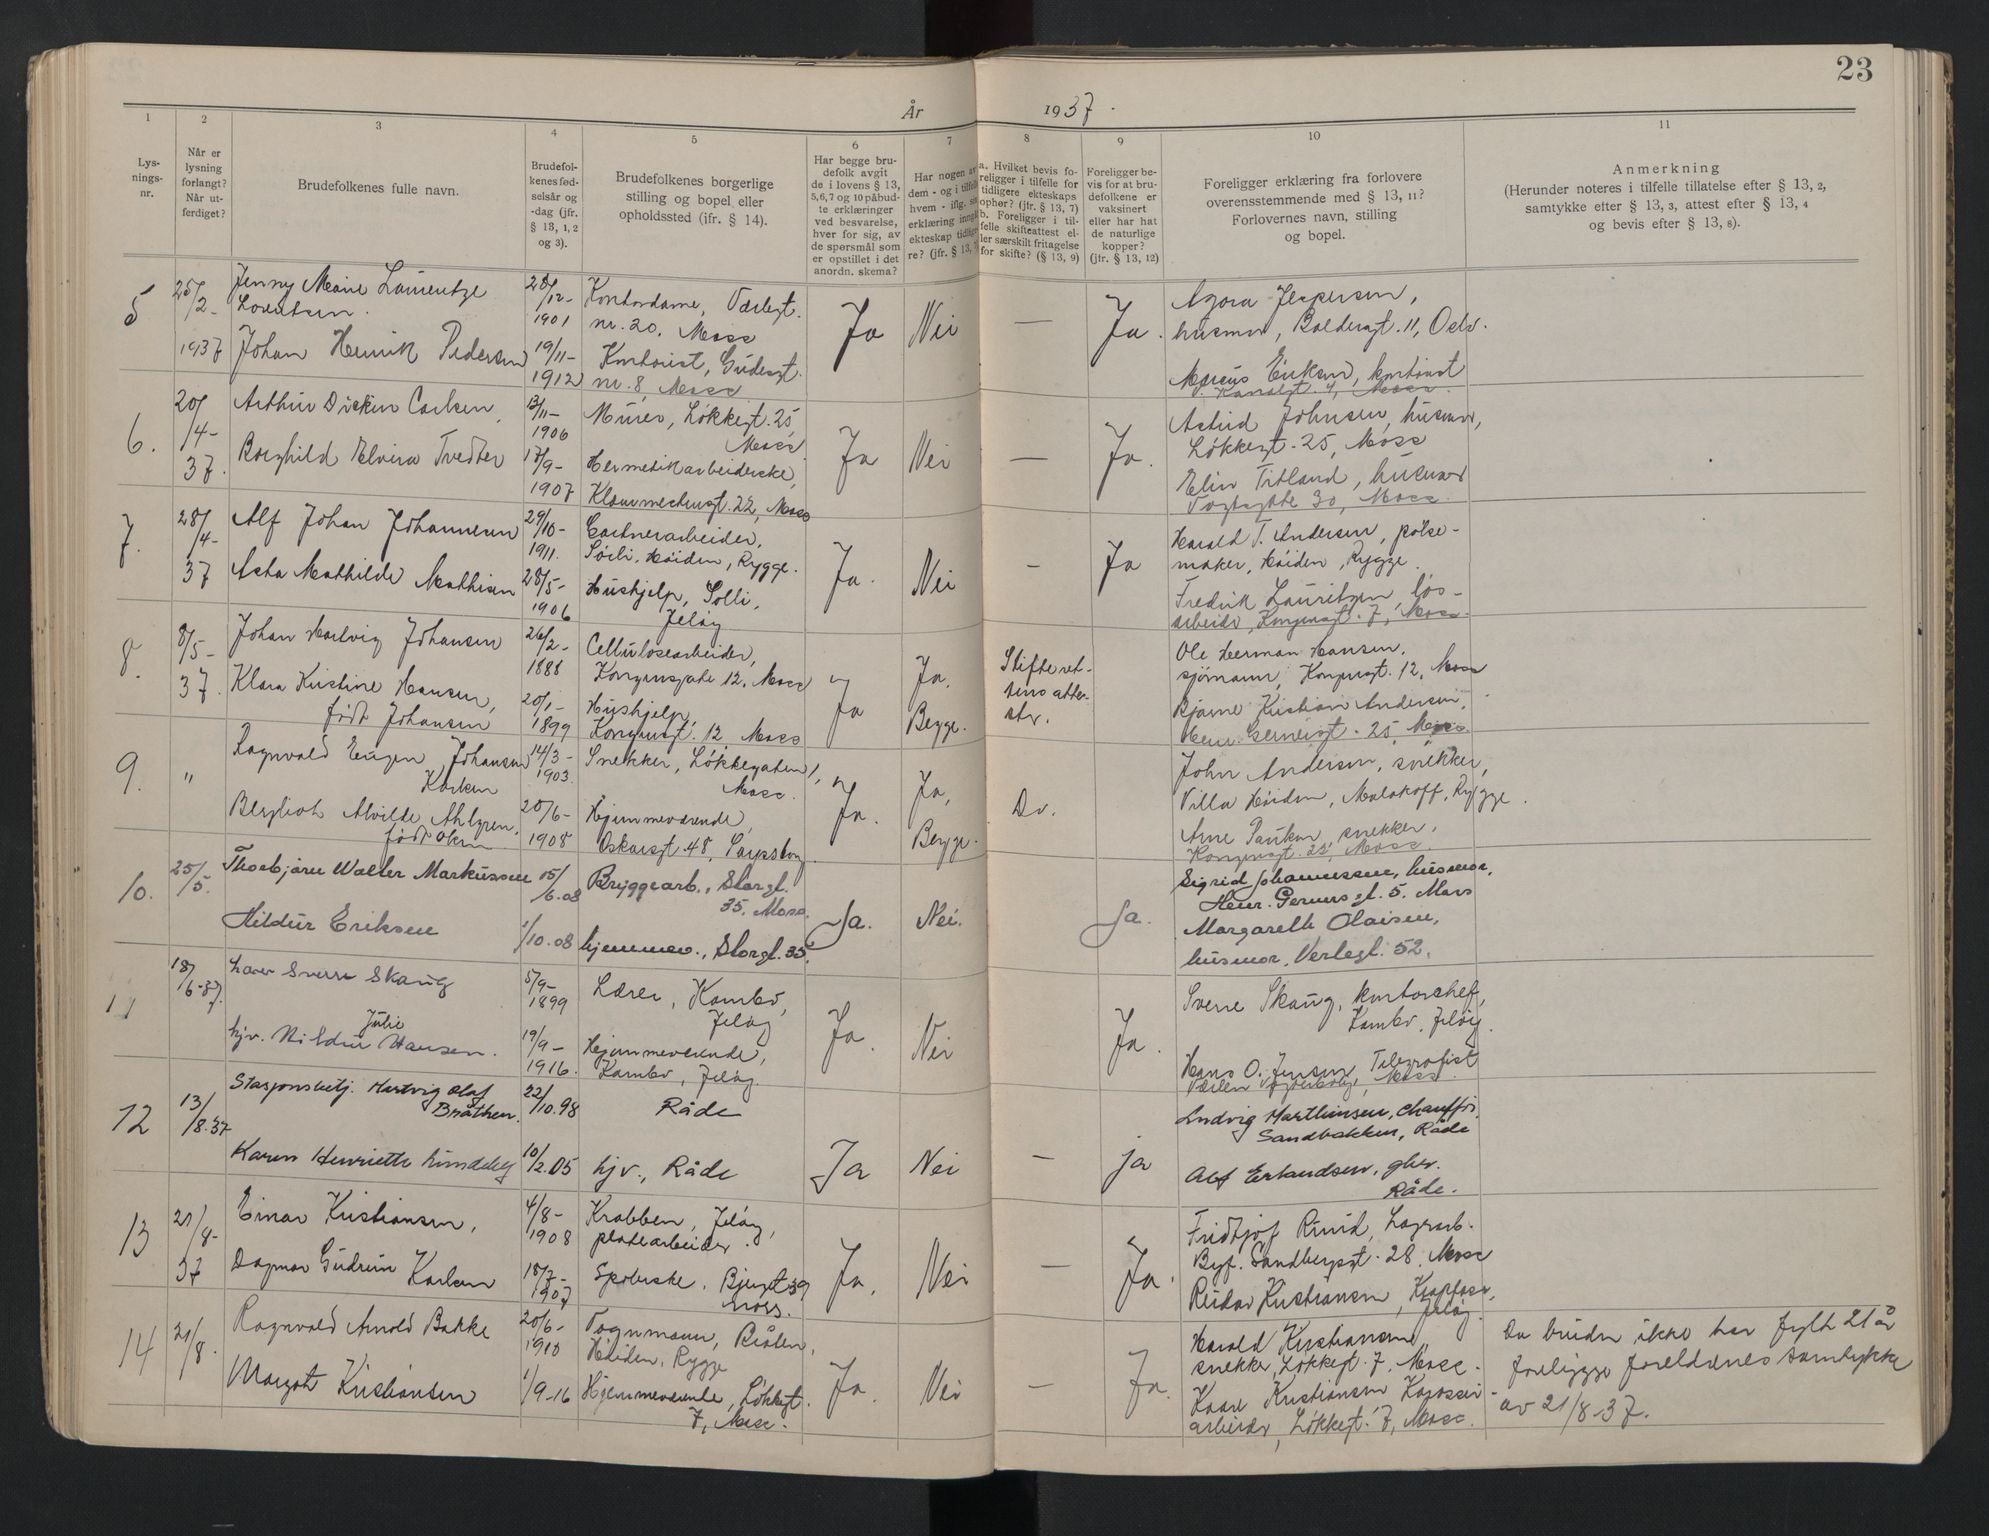 23
År 1937.
1 2 3 4 5 6 7 8 9 10 11
Lys-
nings-
nr.
Når er
lysning
forlangt?
Når ut-
ferdiget?
Brudefolkenes fulle navn.
Brudefol-
kenes fød-
selsår og
-dag (jfr.
§ 13, 1, 2
og 3).
Brudefolkenes borgerlige
stilling og bopel eller
opholdssted (ifr. § 14).
Har begge bru-
defolk avgit
de i lovens § 13,
5, 6, 7 og 10 påbud-
te erklæringer
ved besvarelse,
hver for sig, av
de spørsmål som
er opstillet i det
anordn. skema?
Har nogen av
dem - og i tilfelle
hvem - iflg. sin
erklæring inngå
ekteskap tidlige-
re? (jfr. § 13, 7)
a. Hvilket bevis fo-
religger i tilfelle for
tidligere ekteskaps
ophør? (jfr. § 13, 7)
b. Foreligger i til-
felle skifteattest el-
ler særskilt fritagelse
for skifte? (§ 13, 9)
Foreligger be-
vis for at bru-
defolkene er
vaksinert
eller har hat
de naturlige
kopper?
(jfr. § 13, 12)
Foreligger erklæring fra forlovere
overensstemmende med § 13, 11?
Forlovernes navn, stilling
og bopel.
Anmerkning
(Herunder noteres i tilfelle tillatelse efter § 13, 2,
samtykke efter § 13, 3, attest efter § 13, 4
og bevis efter § 13, 8).
5
25/2-
1937
Jenny Marie Laurentze
Lorentsen.
Johan Henrik Pedersen
28/12-
1901
19/11-
1912
Kontordame, Værlegt.
nr. 20, Moss
Kontorist, Gudesgt.
nr. 8, Moss
Ja Nei — Ja.
Agora Jespersen,
husmor, Baldersgt. 11, Oslo.
Marius Eriksen, kontorist
V. Kanalgt. 4, Moss.
6.
20/4-
37.
Arthur Dickin Carlsen
Borghild Elvira Tvedter
13/11-
1906
17/9-
1907
Murer, Løkkegt. 25,
Moss
Hermetikarbeiderske,
22, Moss
Ja Nei — Ja.
Astrid Johnsen, husmor,
Løkkegt. 25, Moss
Elin Titland, husmor
Vogtsgate 30, Moss.
7.
28/4-
37
Alf Johan Johannesen
Asta Mathilde Mathisen
29/10-
1911.
28/5-
1906
Gartnerarbeider,
Sørli, Høiden, Rygge.
Hushjelp, Solli,
Jeløy
Ja. Nei - Ja
Harald T. Andersen, pølse-
maker, Høiden, Rygge.
Fredrik Lauritzen, løs-
arbeider, Kongensgt. 7, Moss.
8.
8/5-
37.
Johan Hartvig Johansen
Klara Kristine Hansen,
født Johansen
26/2-
1888
20/1-
1899
Cellulosearbeider,
Kongensgate 12, Moss
Hushjelp,
Kongensgt. 12 Moss
Ja
Ja,
Begge.
Skifteret-
tens attes-
ter.
Ole Herman Hansen,
sjømann, Kongensgt. 12, Moss
Bjarne Kristian Andersen,
Henr. Gernersgt. 25, Moss.
9.
"
Ragnvald Eugen Johansen
Karlsen
Bergliot Alvilde Ahlgren,
født Olsen
14/3-
1903.
20/6-
1908
Snekker, Løkkegaten 1,
Moss.
Hjemmeværende,
Oskarsgt. 48, Sarpsborg.
Ja.
Ja,
Begge.
Do.
John Andersen, snekker,
Villa Høiden, Malakoff, Rygge.
Arne Paulsen, snekker,
Kongensgt. 25, Moss.
10.
25/5.
Thorbjørn Walter Markussen
Hildur Eriksen
15/6.08
1/10.08
Bryggearb., Storgt.
35, Moss.
hjemmev., Storgt. 35.
Ja. Nei. Ja.
Sigrid Johannessen, husmor,
Henr. Gerners gt. 5. Moss
Margareth Olaisen,
husmor, Verlegt. 52.
11
18/6-37.
Lærer Sverre Skaug
Julie
hjv. Hildur Hansen.
5/9-
1899
19/9-
1916.
Lærer, Kambo,
Jeløy
Hjemmeværende,
Kambo, Jeløy.
Ja. Nei - Ja.
Sverre Skaug, kontorchef,
Kambo, Jeløy.
Hans O. Jensen, Telegrafist
Moss
12
13/8.37
Stasjonsbetj. Hartvig Olaf
Bråthen.
Karen Henriette Lundeby
22/10.98
10/2.05
Råde
hjv., Råde
Ja Nei — ja
Ludvig Marthinsen, chauffør.
Sandbakken, Råde
Alf Erlandsen, gbr.
Råde.
13
21/8-
37
Einar Kristiansen,
Dagmar Gudrun Karlsen
4/8-
1908
18/7-
1907
Krabben, Jeløy,
platearbeider.
Spolerske, 39
Moss.
Ja. Nei — Ja.
Fridtjof Ruud, Lagerarb.
Byf. Sandbergsgt. 28, Moss
Reidar Kristiansen,
Jeløy
14
21/8.
Ragnvald Arnold Bakke
Margot Kristiansen
20/6-
1910
1/9-16
Vognmann, Bråten,
Høiden, Rygge
Hjemmeværende, Løkkegt.
7, Moss.
Ja. Nei — Ja.
Harald Kristiansen,
snekker, Løkkegt. 7, Moss.
Kaare Kristiansen
arbeider, Løkkegt. 7, Moss.
Da bruden ikke har fylt 21 år
foreligge foreldrenes samtykke
av 21/8-37.